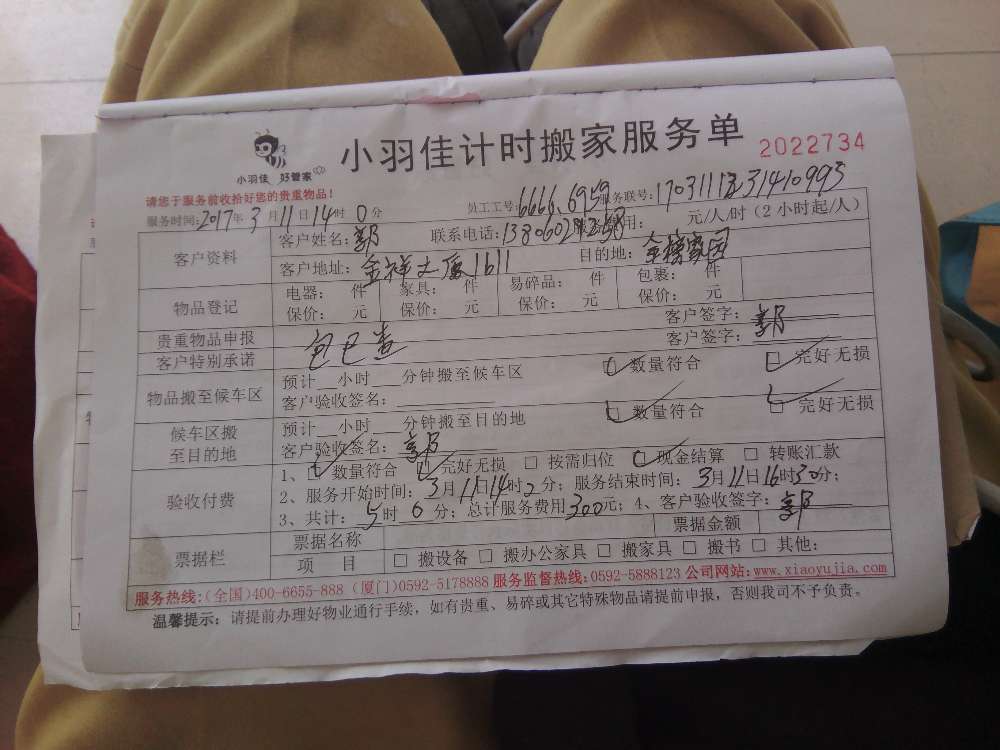 小羽佳计时搬家服务单 2022734
小羽佳 好管家
请您于服务前收拾好您的贵重物品!
服务时间:2017年3月11日14时0分 员工工号:6666.6959 服务联号:
客户资料
客户姓名:郭 联系电话: 元/人/时(2小时起/人)
客户地址:金祥大厦1611 目的地:金榜家园
物品登记
电器: 件 家具: 件 易碎品: 件 包裹: 件
保价: 元 保价: 元 保价: 元 保价: 元
贵重物品申报 包已查 客户签字:郭
客户特别承诺 客户签字:
物品搬至候车区
预计__小时__分钟搬至候车区 数量符合 完好无损
客户验收签名:
候车区搬至目的地
预计__小时__分钟搬至目的地 数量符合 完好无损
客户验收签名:郭
验收付费
1、数量符合 完好无损 □ 按需归位 现金结算 □ 转账汇款
2、服务开始时间:3月11日14时2分;服务结束时间:3月11日16时30分;
3、共计:5时0分;总计服务费用300元;4、客户验收签字:郭
票据栏
票据名称 票据金额
项 目 □ 搬设备 □ 搬办公家具 □ 搬家具 □ 搬书 □ 其他:
服务热线:(全国)400-6655-888 (厦门)0592-5178888 服务监督热线:0592-5888123 公司网站:www.xiaoyujia.com
温馨提示:请提前办理好物业通行手续,如有贵重、易碎或其它特殊物品请提前申报,否则我司不予负责。